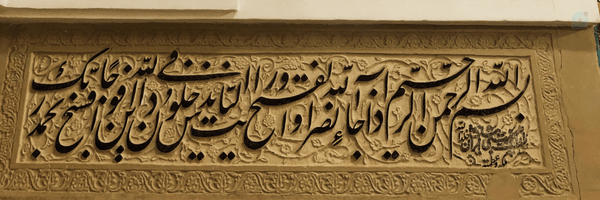 بسم الله الرحمن الرحیم اذا جاء نصر الله و الفتح و رایت الناس یدخلون فی دین الله افواجا فسبح بحمد ربک